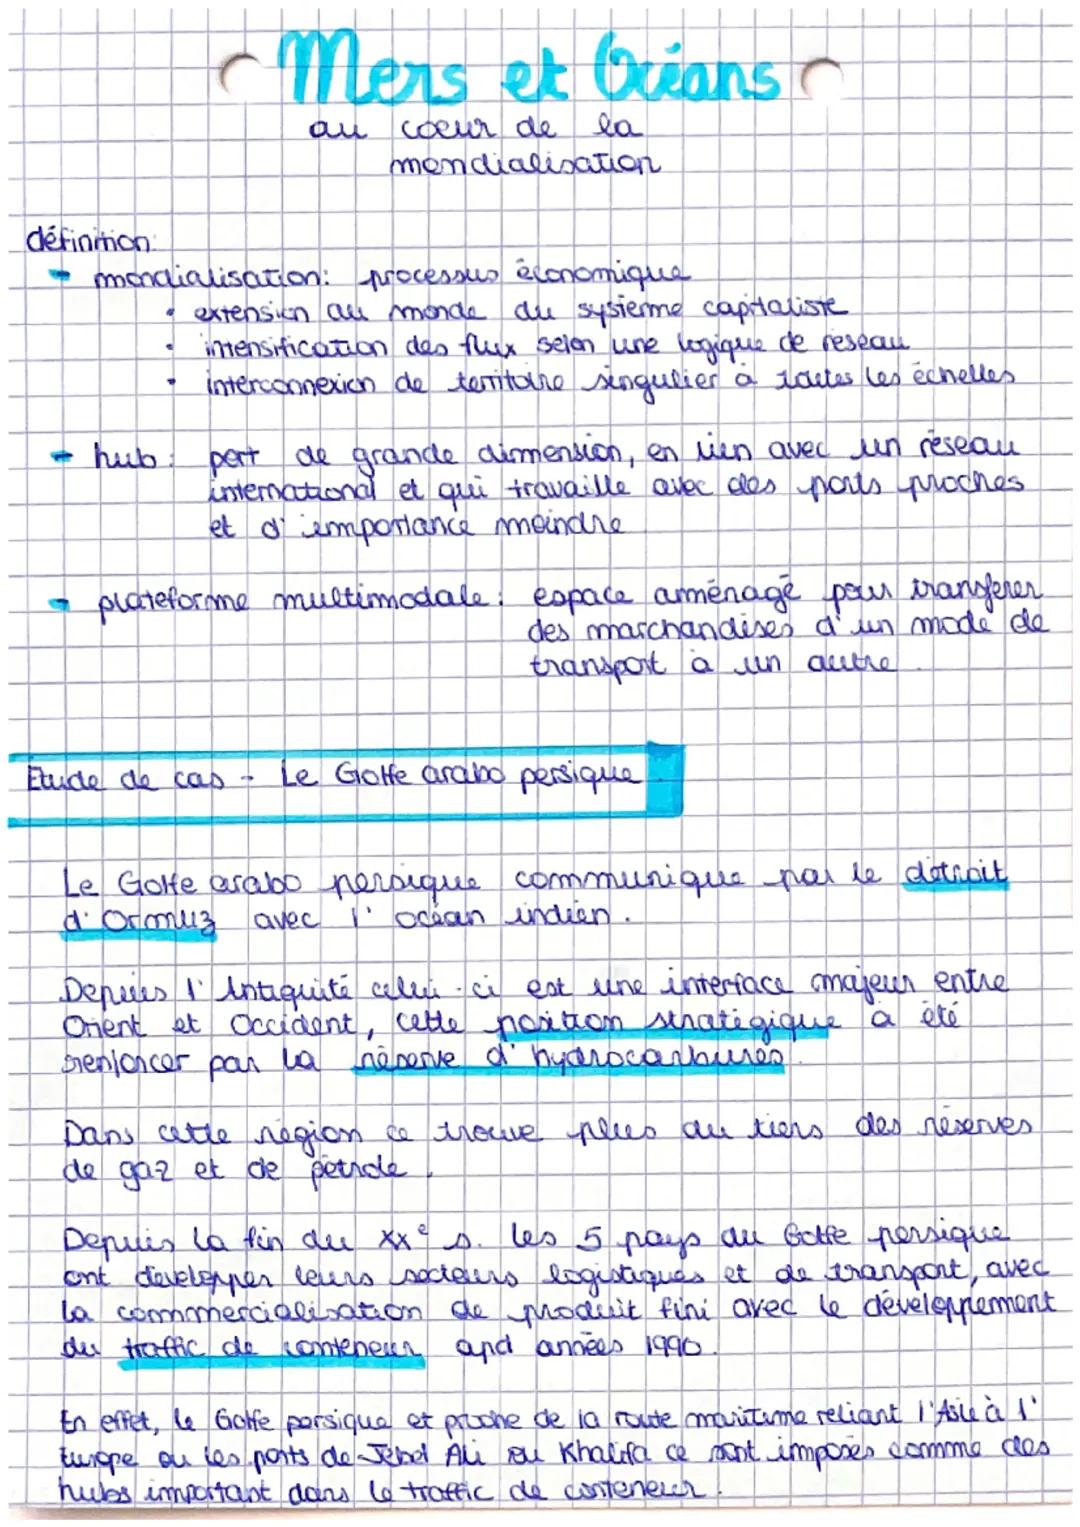 Mers et Océans
au coeur de la
mondialisation
définition:
mondialisation: processus économique
• extension au monde du système capitaliste
• intensification des flux selon une logique de réseau
• interconnexion de territoire singulier à toutes les échelles
hub: port de grande dimension, en lien avec un réseau
international et qui travaille avec des ports proches
et d'importance moindre
plateforme multimodale: espace aménagé pour transférer
des marchandises d'un mode de
transport à un autre.
Etude de cas - Le Golfe arabo persique
Le Golfe arabo persique communique par le détroit
d'Ormuz avec l'océan indien.
Depuis l'Antiquité celui-ci est une interface majeur entre
Orient et Occident, cette position stratégique a été
renforcer par la réserve d'hydrocarbures.
Dans cette région ce trouve plus du tiers des réserves
de gaz et de pétrole.
Depuis la fin du XXe s. les 5 pays du Golfe persique
ont développer leurs secteurs logistiques et de transport, avec
la commercialisation de produit fini avec le développement
du traffic de conteneur apd années 1990.
En effet, le Golfe persique et proche de la route maritime reliant l'Asie à l'
Europe ou les ports de Jebel Ali ou Khalifa ce sont imposés comme des
hubs important dans le traffic de conteneur.